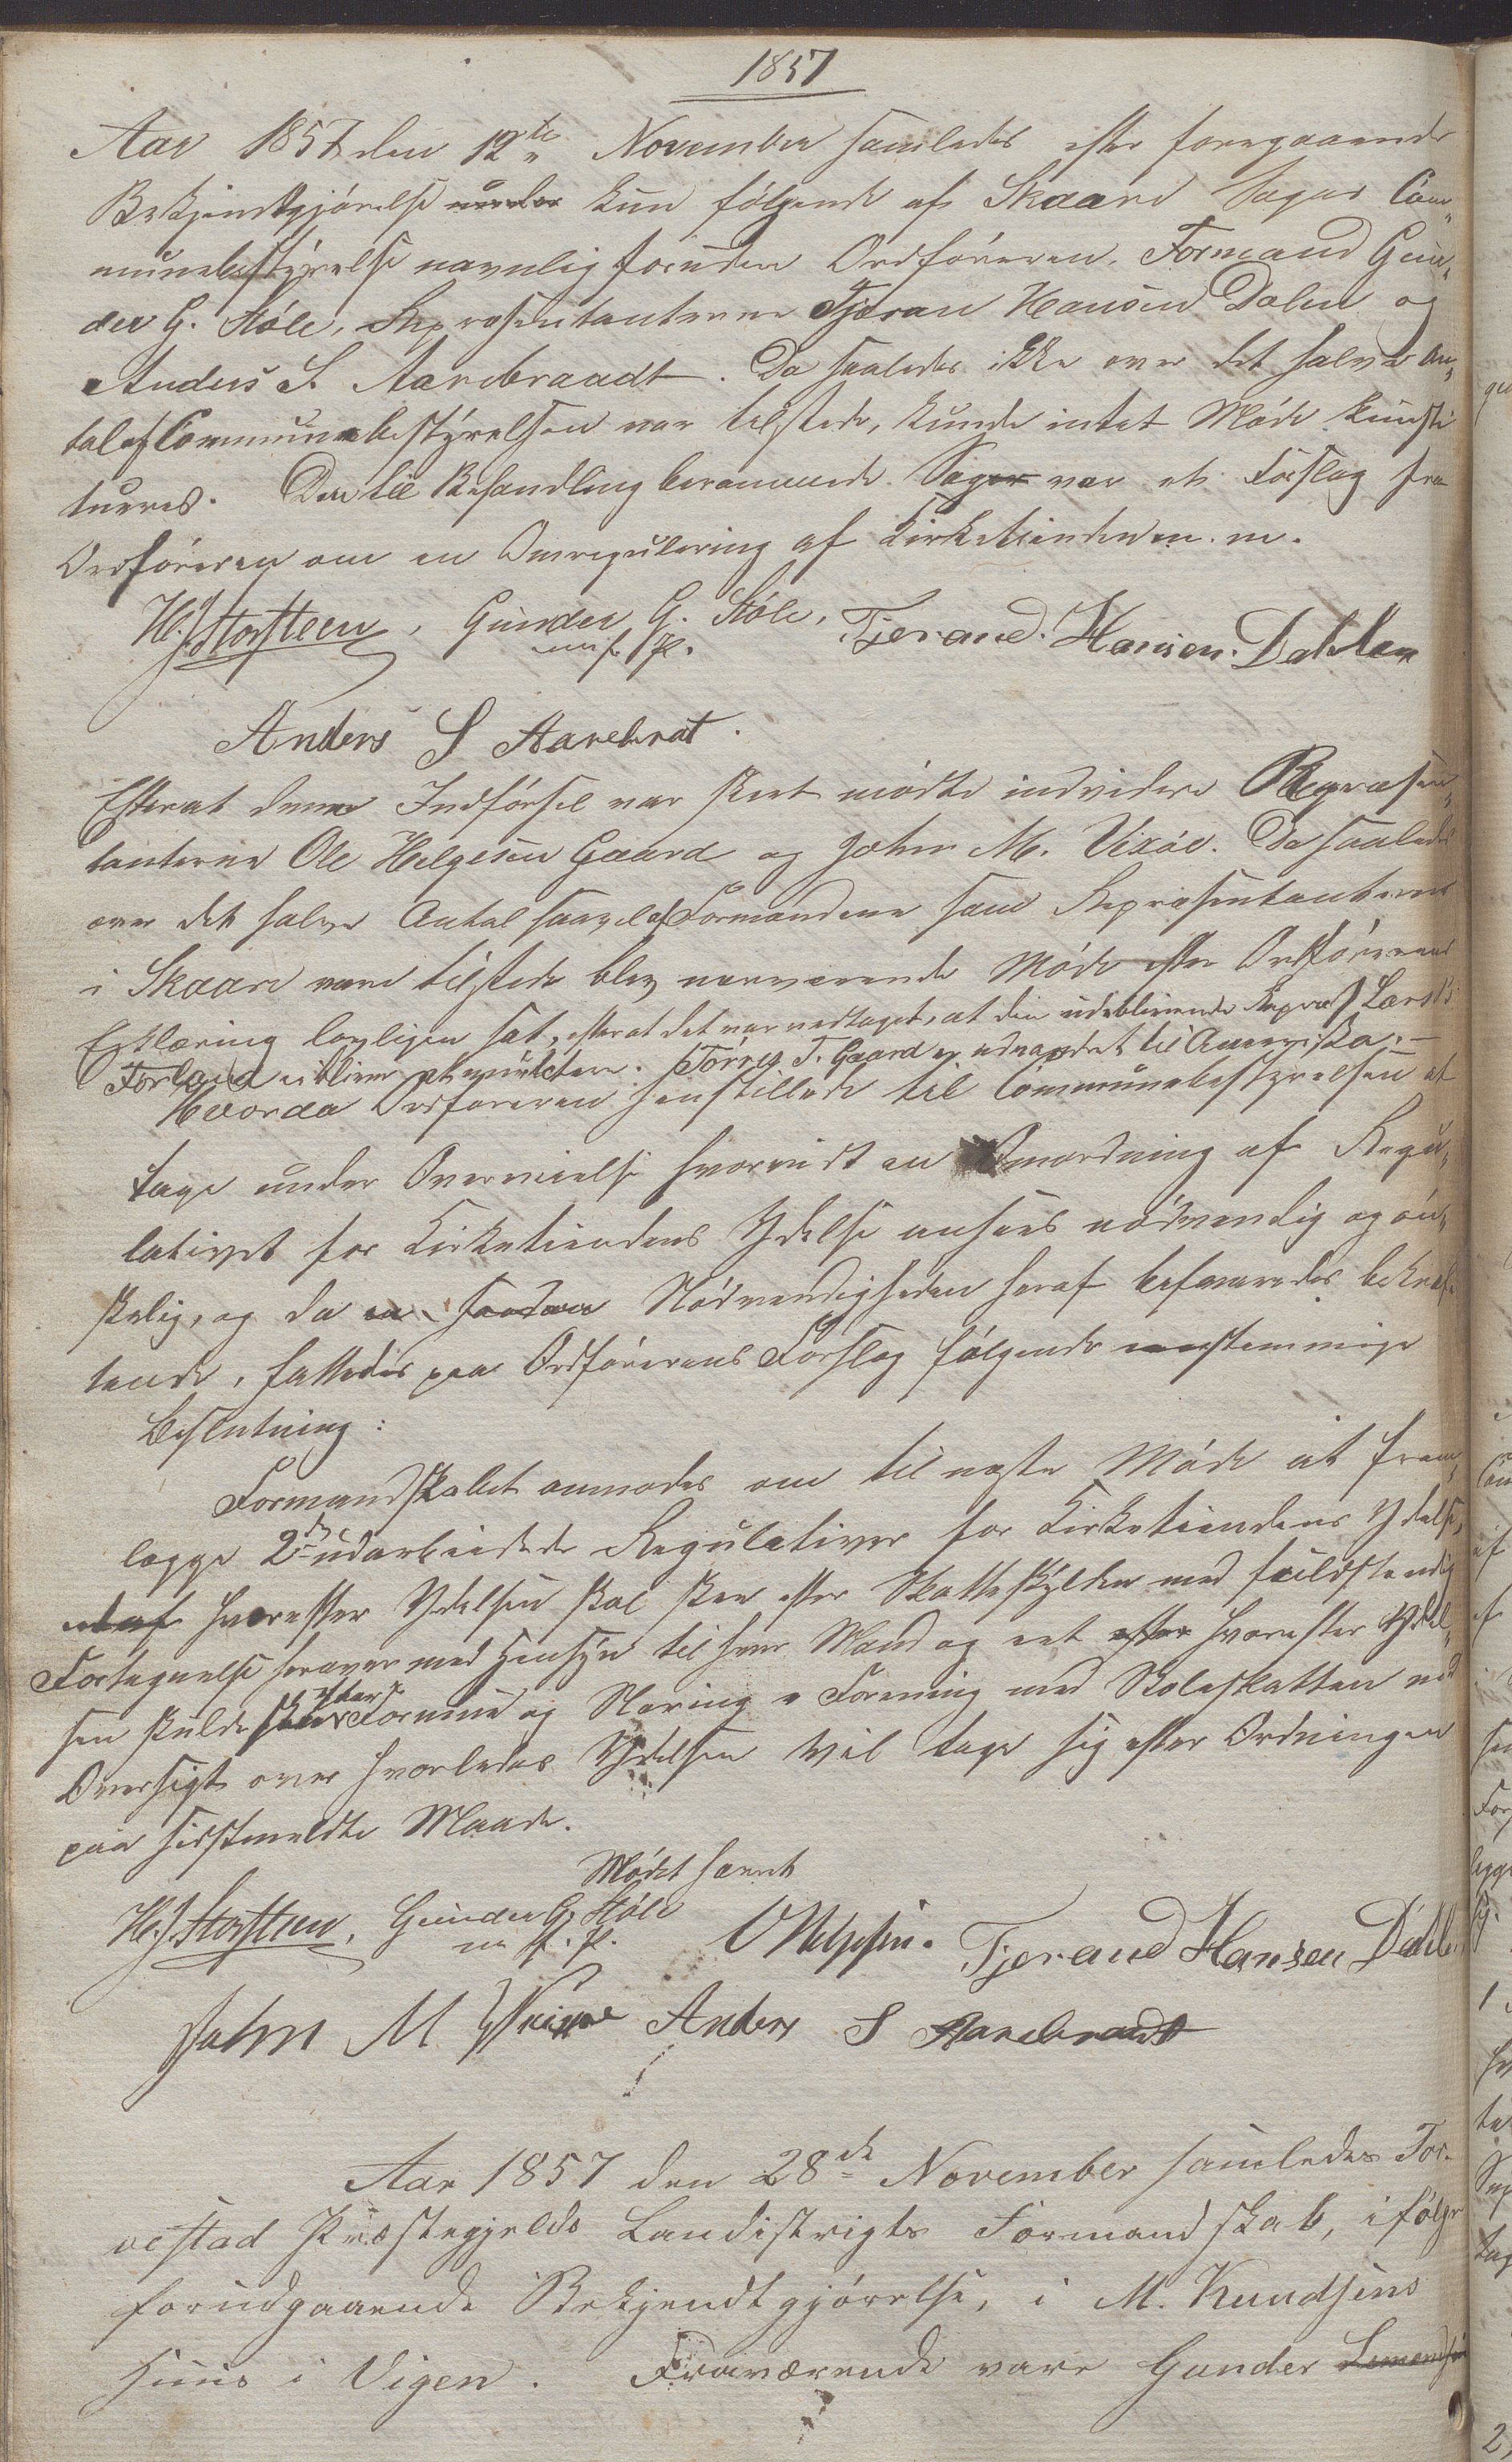 1857
Aar 1857 den 12te November samledes efter foregaaende
Bekjendtgjørelse under kun følgende af Skaare Sogns Com-
munebestyrelse navnlig foruden Ordføreren, Formand Gun-
der G. Støle, Repræsentanterne Tjeran Hansen Dalen og
Anders S. Aarebraadt. Da saaledes ikke over det halve An-
tal af Communebestyrelsen var tilstede, kunde intet Møde konsti-
tueres. Den til Behandling berammede Sager var et Forslag fra
Ordføreren om en Omregulering af Kirketienden m. m.
H. J. Storsteen, Gunder G. Støle, Tjerand Hansen Dahlen
m. f. P.
Anders S Aarebrat.
Efterat denne Indførsel var skeet mødte indvidere Repræsen-
tanterne Ole Helgesen Gaard og John M. Vixøe. Da saaledes
over det halve Antal saavel af Formændene som Repræsentanterne
i Skaare vare tilstede blev nærværende Møde efter Ordførerens
Erklæring lovligen sat, efterat det var vedtaget, at den udeblivende Repræs. Lars
Førland ei bliver at mulctere. Tørres T. Gaard er udvandret til Amerika.-
Hvorda Ordføreren henstillede til Communebestyrelsen at
tage under Overveielse hvorvidt en Omordning af Regu-
lativet for Kirketiendens Ydelse ansees nødvendig og øn-
skelig, og da en saadan Nødvendigheden heraf befandtes bekræf-
tende, fattedes paa Ordførerens Forslag følgende eenstemmige
Beslutning:
Formandskabet anmodes om til næste Møde at frem-
lægge 2de udarbeidede Regulativer for Kirketiendens Ydelse,
et af hvorefter Ydelsen skal skee efter Skatteskylden med fuldstændig
Fortegnelse herover med Hensyn til hver Mand og eet efter hvorefter Ydel-
sen skulde skee efter Formue og Næring i Forening med Skoleskatten med
Oversigt over hvorledes Ydelsen vil tage sig efter Ordningen
paa sidstmeldte Maade.
Mødet hævet
H. J. Storsteen, Gunder G. Støle O Helgesen. Tjerand Hansen Dahlen
m. f. P.
John M Vixøe Anders S Aarebraadt
Aar 1857 den 28de November samledes Tor-
vestad Præstegjelds Landistrigts Formandskab, ifølge
forudgaaende Bekjendtgjørelse, i M. Knudsens
Huus i Vigen. Fraværende vare Gunder